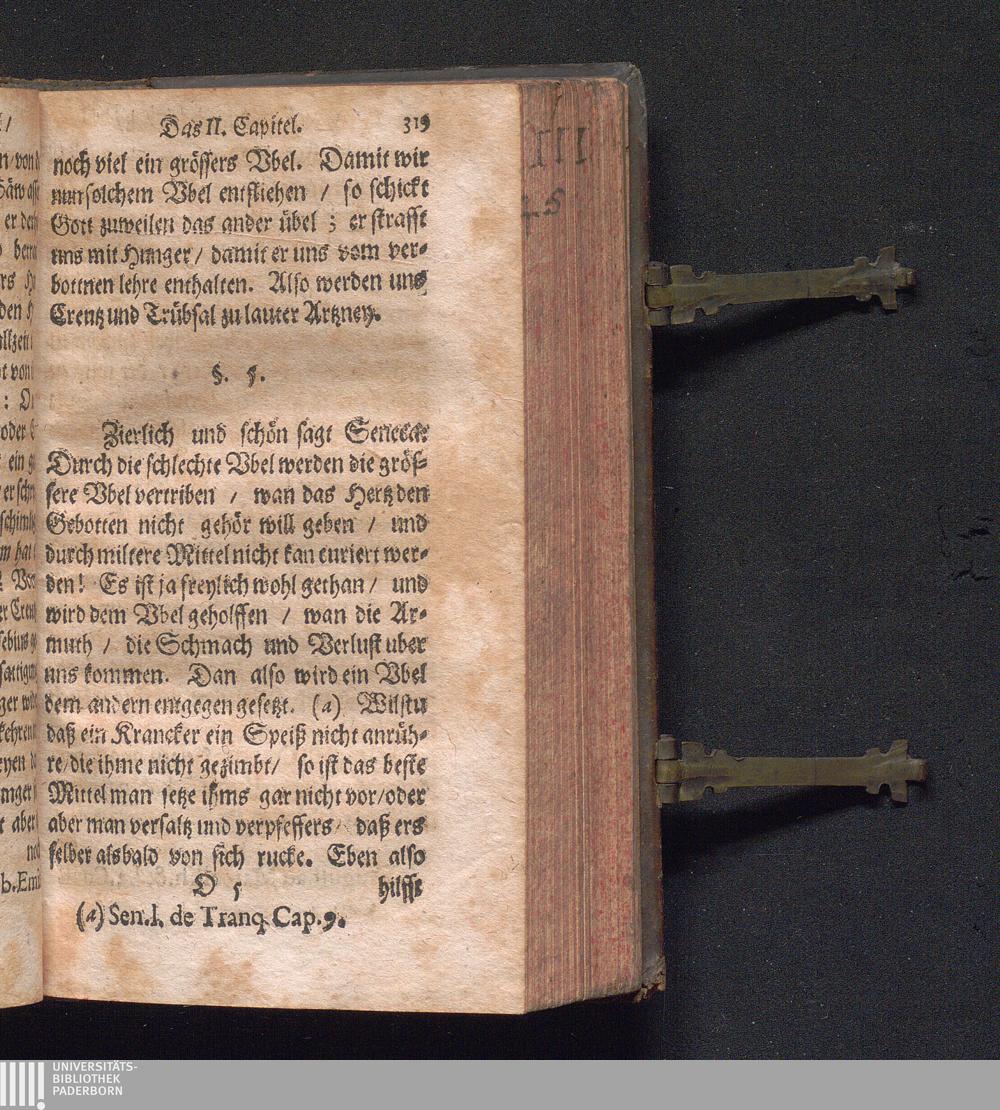 Das II. Capitel. 319
noch viel ein grössers Vbel. Damit wir
nun solchem Vbel entfliehen / so schickt
Gott zuweilen das ander übel ; er strafft
uns mit Hunger / damit er uns vom ver-
bottnen lehre enthalten. Also werden uns
Creutz und Trübsal zu lauter Artzney.
§. 5.
Zierlich und schön sagt Seneca:
Durch die schlechte Vbel werden die grös-
sere Vbel vertriben / wan das Hertz den
Gebotten nicht gehör will geben / und
durch miltere Mittel nicht kan curiert wer-
den! Es ist ja freylich wohl gethan / und
wird dem Vbel geholffen / wan die Ar-
muth / die Schmach und Verlust uber
uns kommen. Dan also wird ein Vbel
dem andern entgegen gesetzt. (a) Wilstu
daß ein Krancker ein Speiß nicht anrüh-
re / die ihme nicht gezimbt / so ist das beste
Mittel man setze ihms gar nicht vor / oder
aber man versaltz und verpfeffers / daß ers
selber alsbald von sich rucke. Eben also
O 5 hilfft
(a) Sen. l. de Tranq. Cap. 9.
III
45
UNIVERSITÄTS-
BIBLIOTHEK
PADERBORN